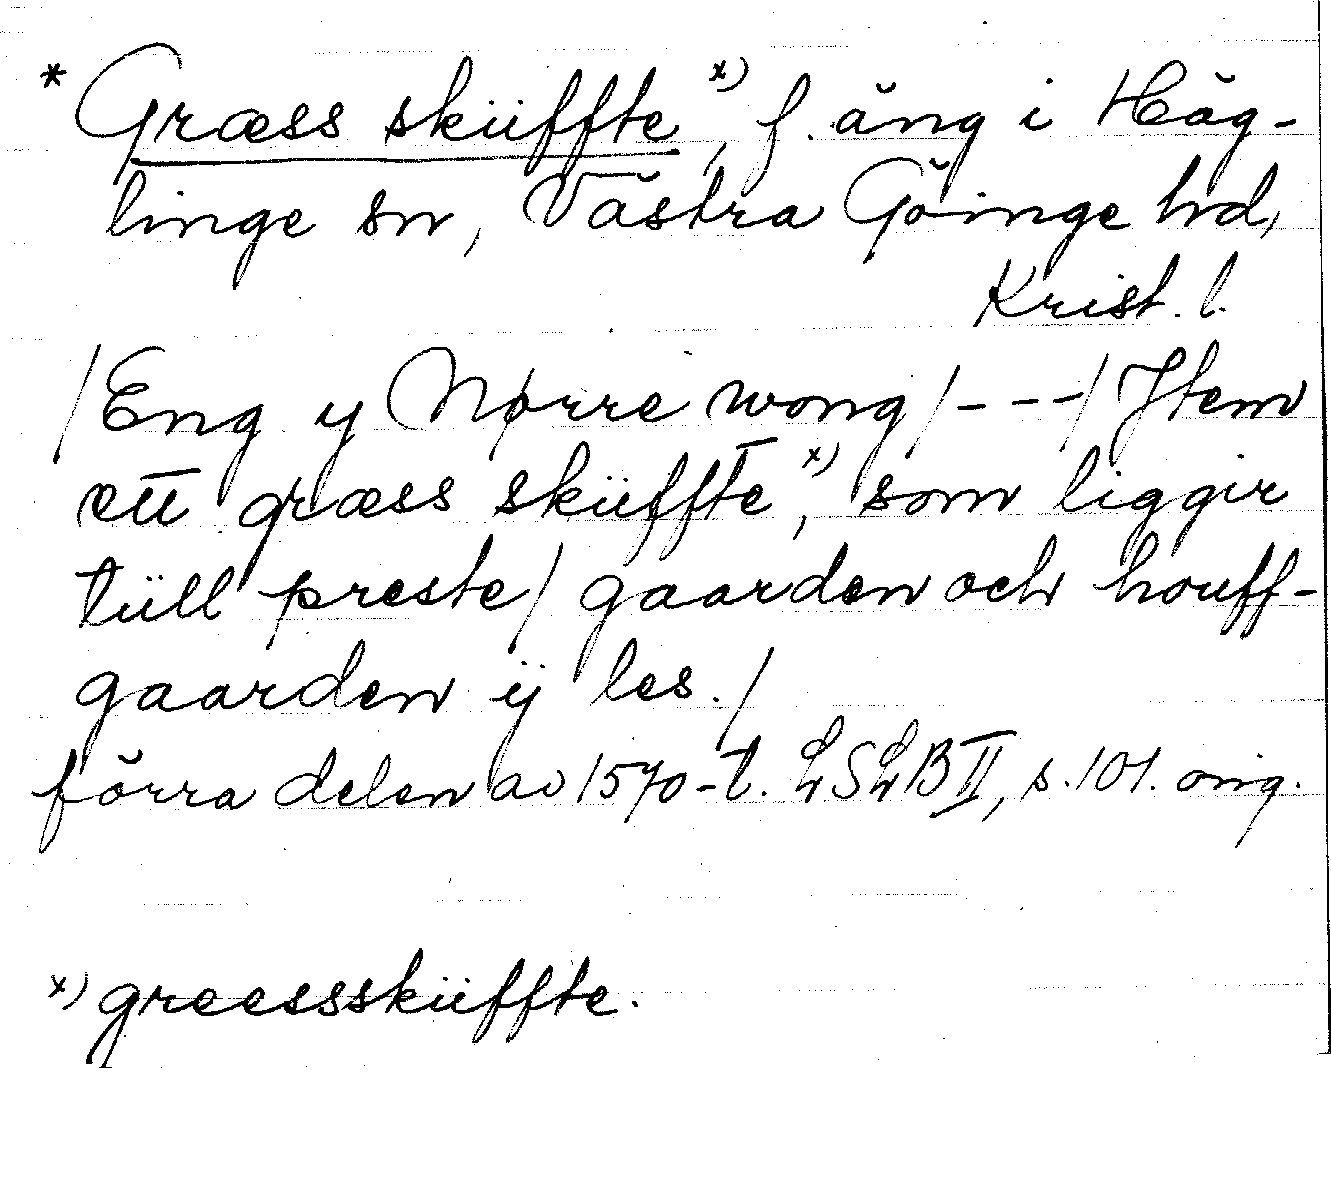 * Græss sküffte x), f. äng i Häg-
linge sn, Västra Göinge hd,
Krist. l.
/Eng y Nørre wong/---/Jtem
ett græss sküffte x), som liggir
tüll preste/gaarden och houff-
gaarden ÿ les./
förra delen av 1570-t. LSLB II, s. 101. orig.
x) greesssküffte.